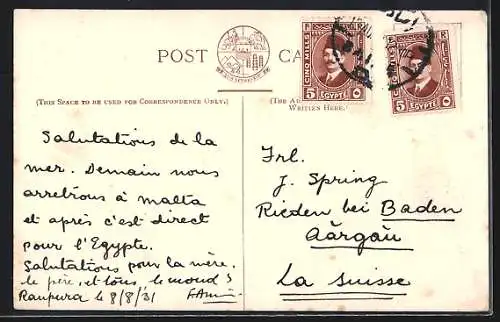 POST CA
(THIS SPACE TO BE USED FOR CORRESPONDENCE ONLY.)
(THE
WRITTEN HERE.)
CINQ MILLS
5 EGYPTE
CINQ MILLS
5 EGYPTE
Salutations de la
mer. Demain nous
arretrons à Malta
et après c'est direct
pour l'Egypte.
Salutations pour la mère,
le père, et tous le mond
Ranpura le 8/8/31
Frl.
J. Spring
Rieden bei Baden
Aargau
La Suisse